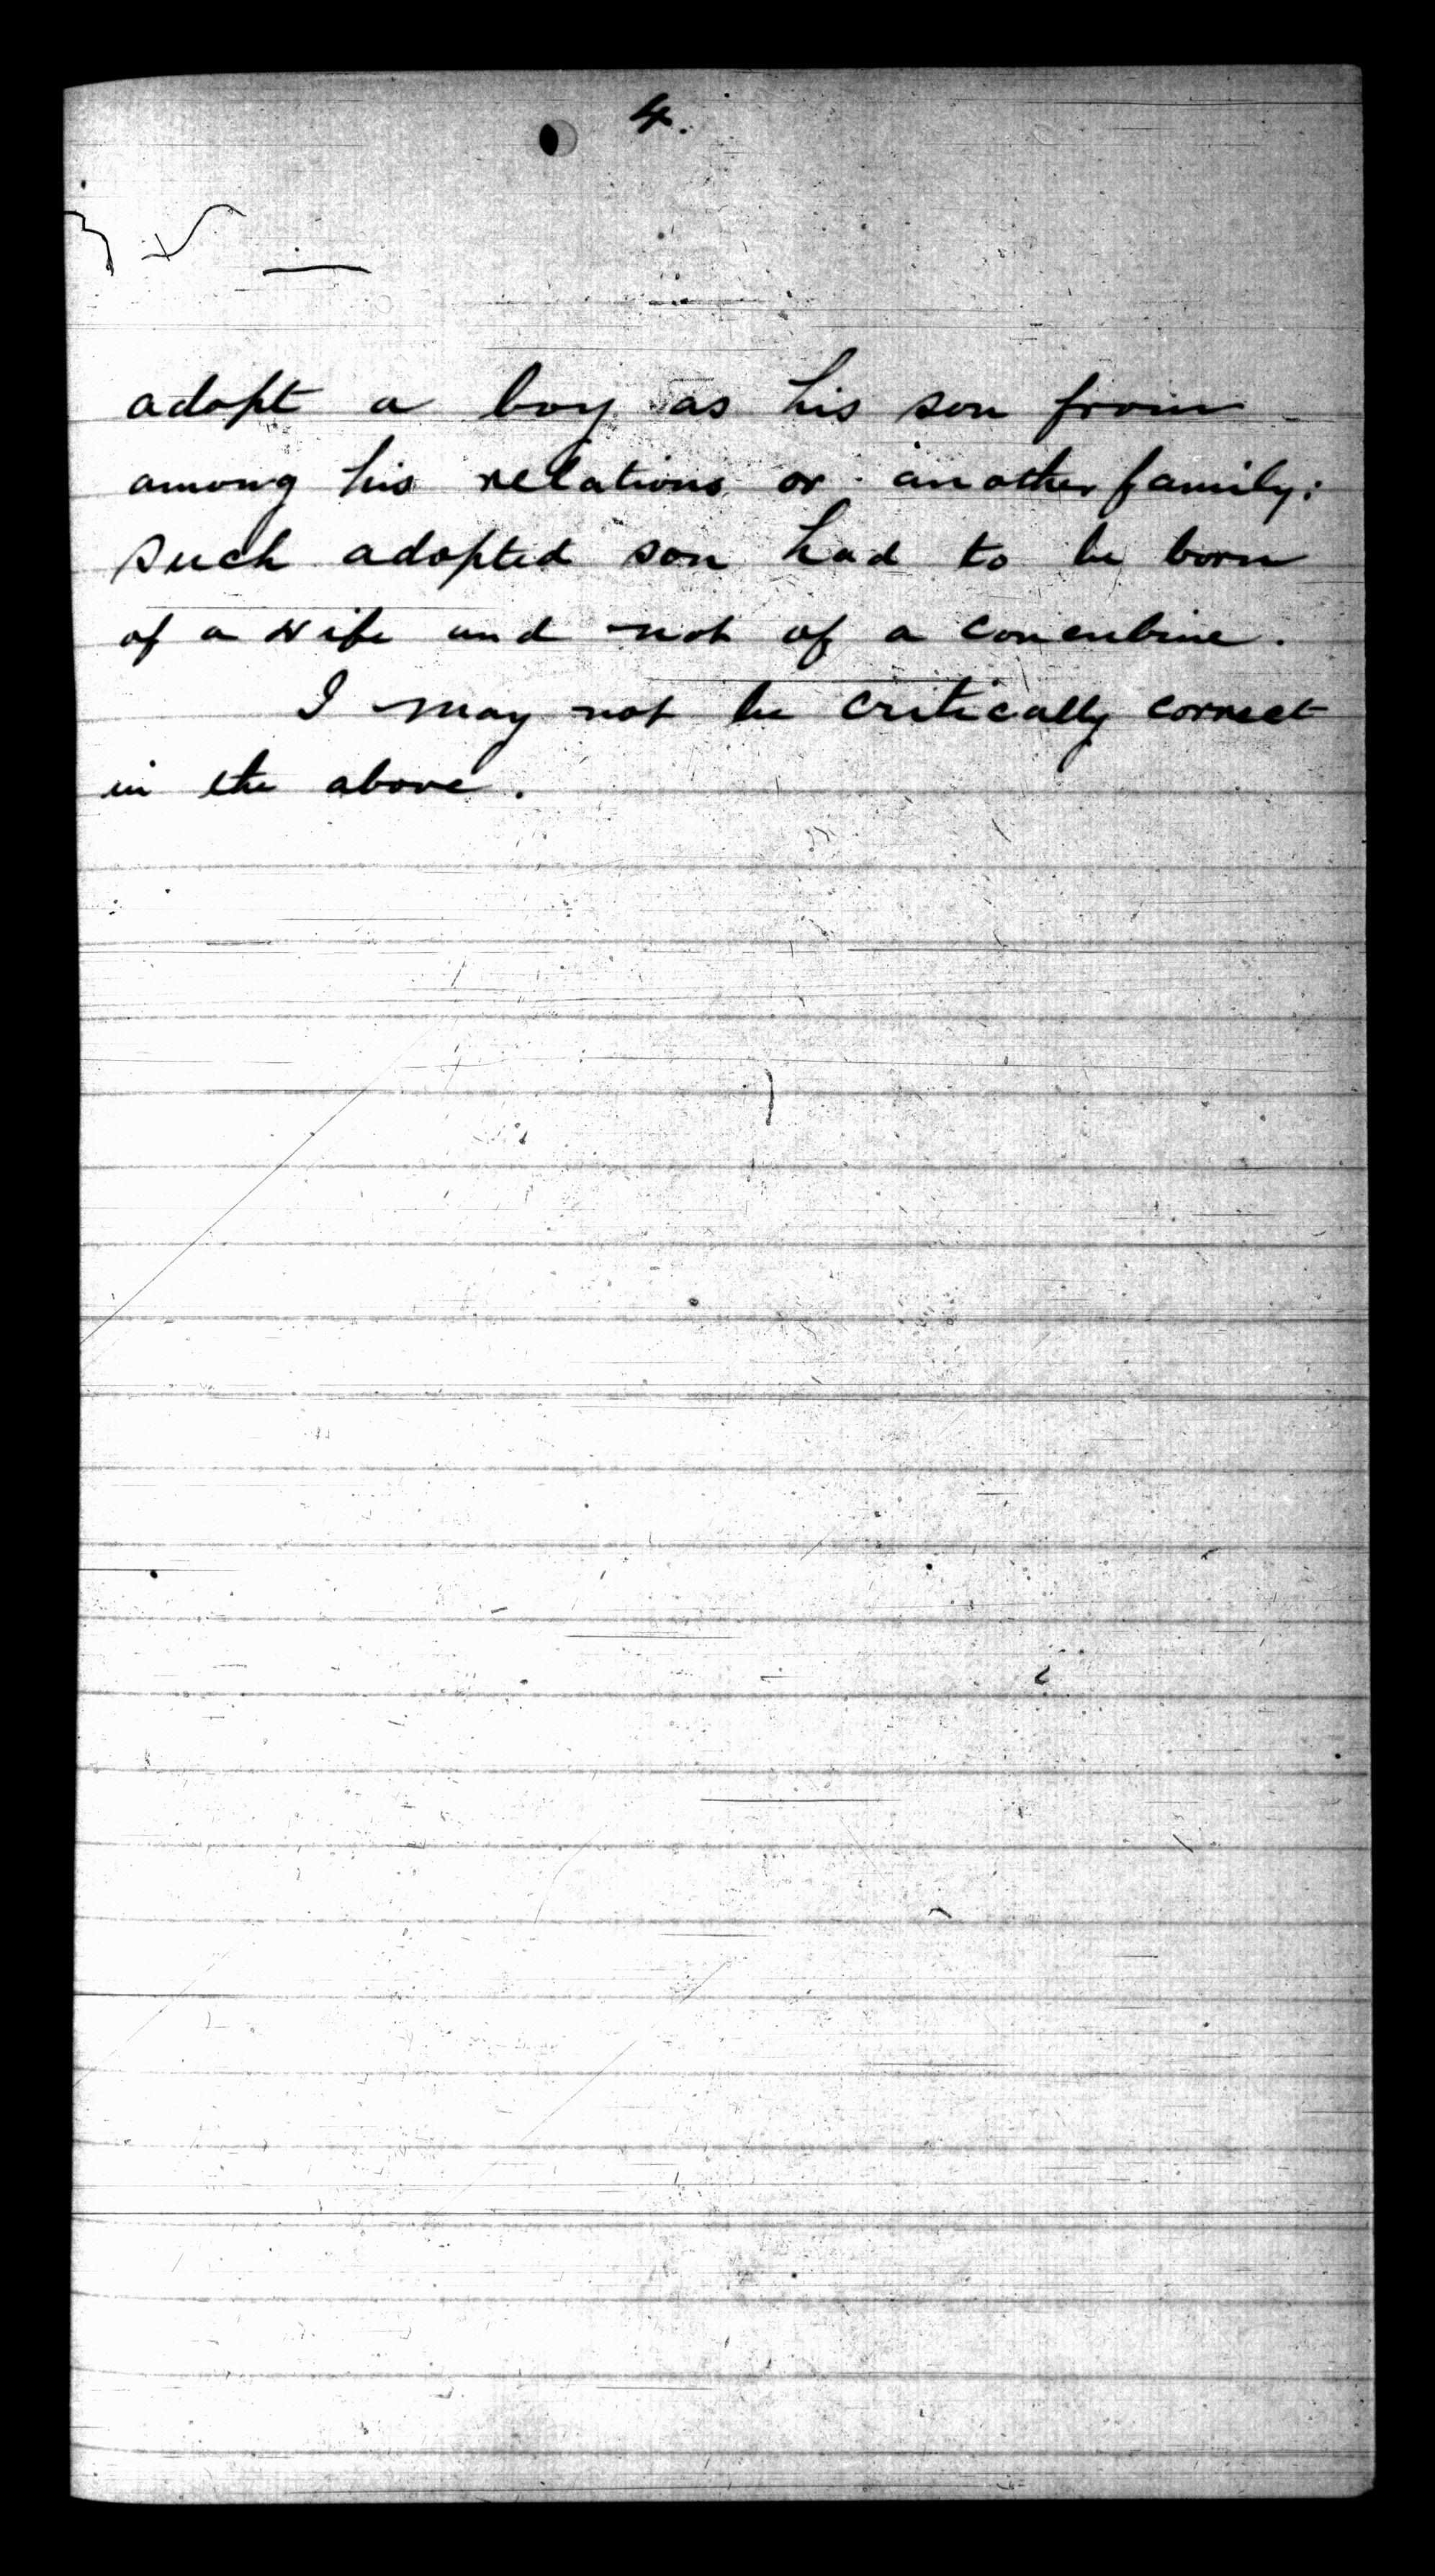 4.
adopt a boy as his son from
among his relations or another family:
such adopted son had to be born
of a wife and not of a concubine.
I may not be critically correct
in the above.